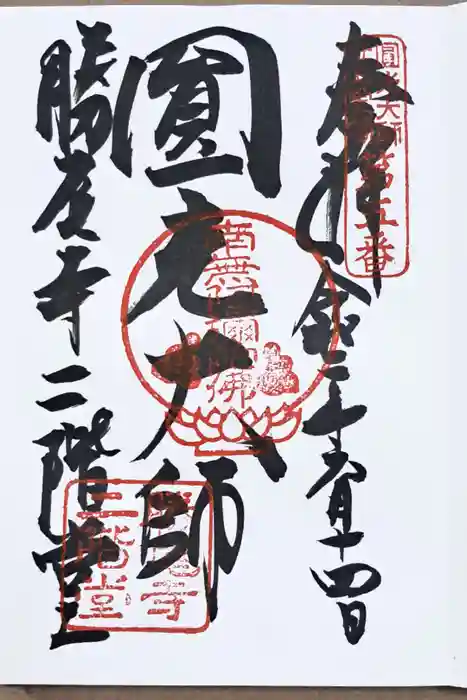 奉拝 令和二年五月十四日
圓光大師第五番
圓光大師
南無阿弥陀佛
勝尾寺二階堂
勝尾寺
二階堂